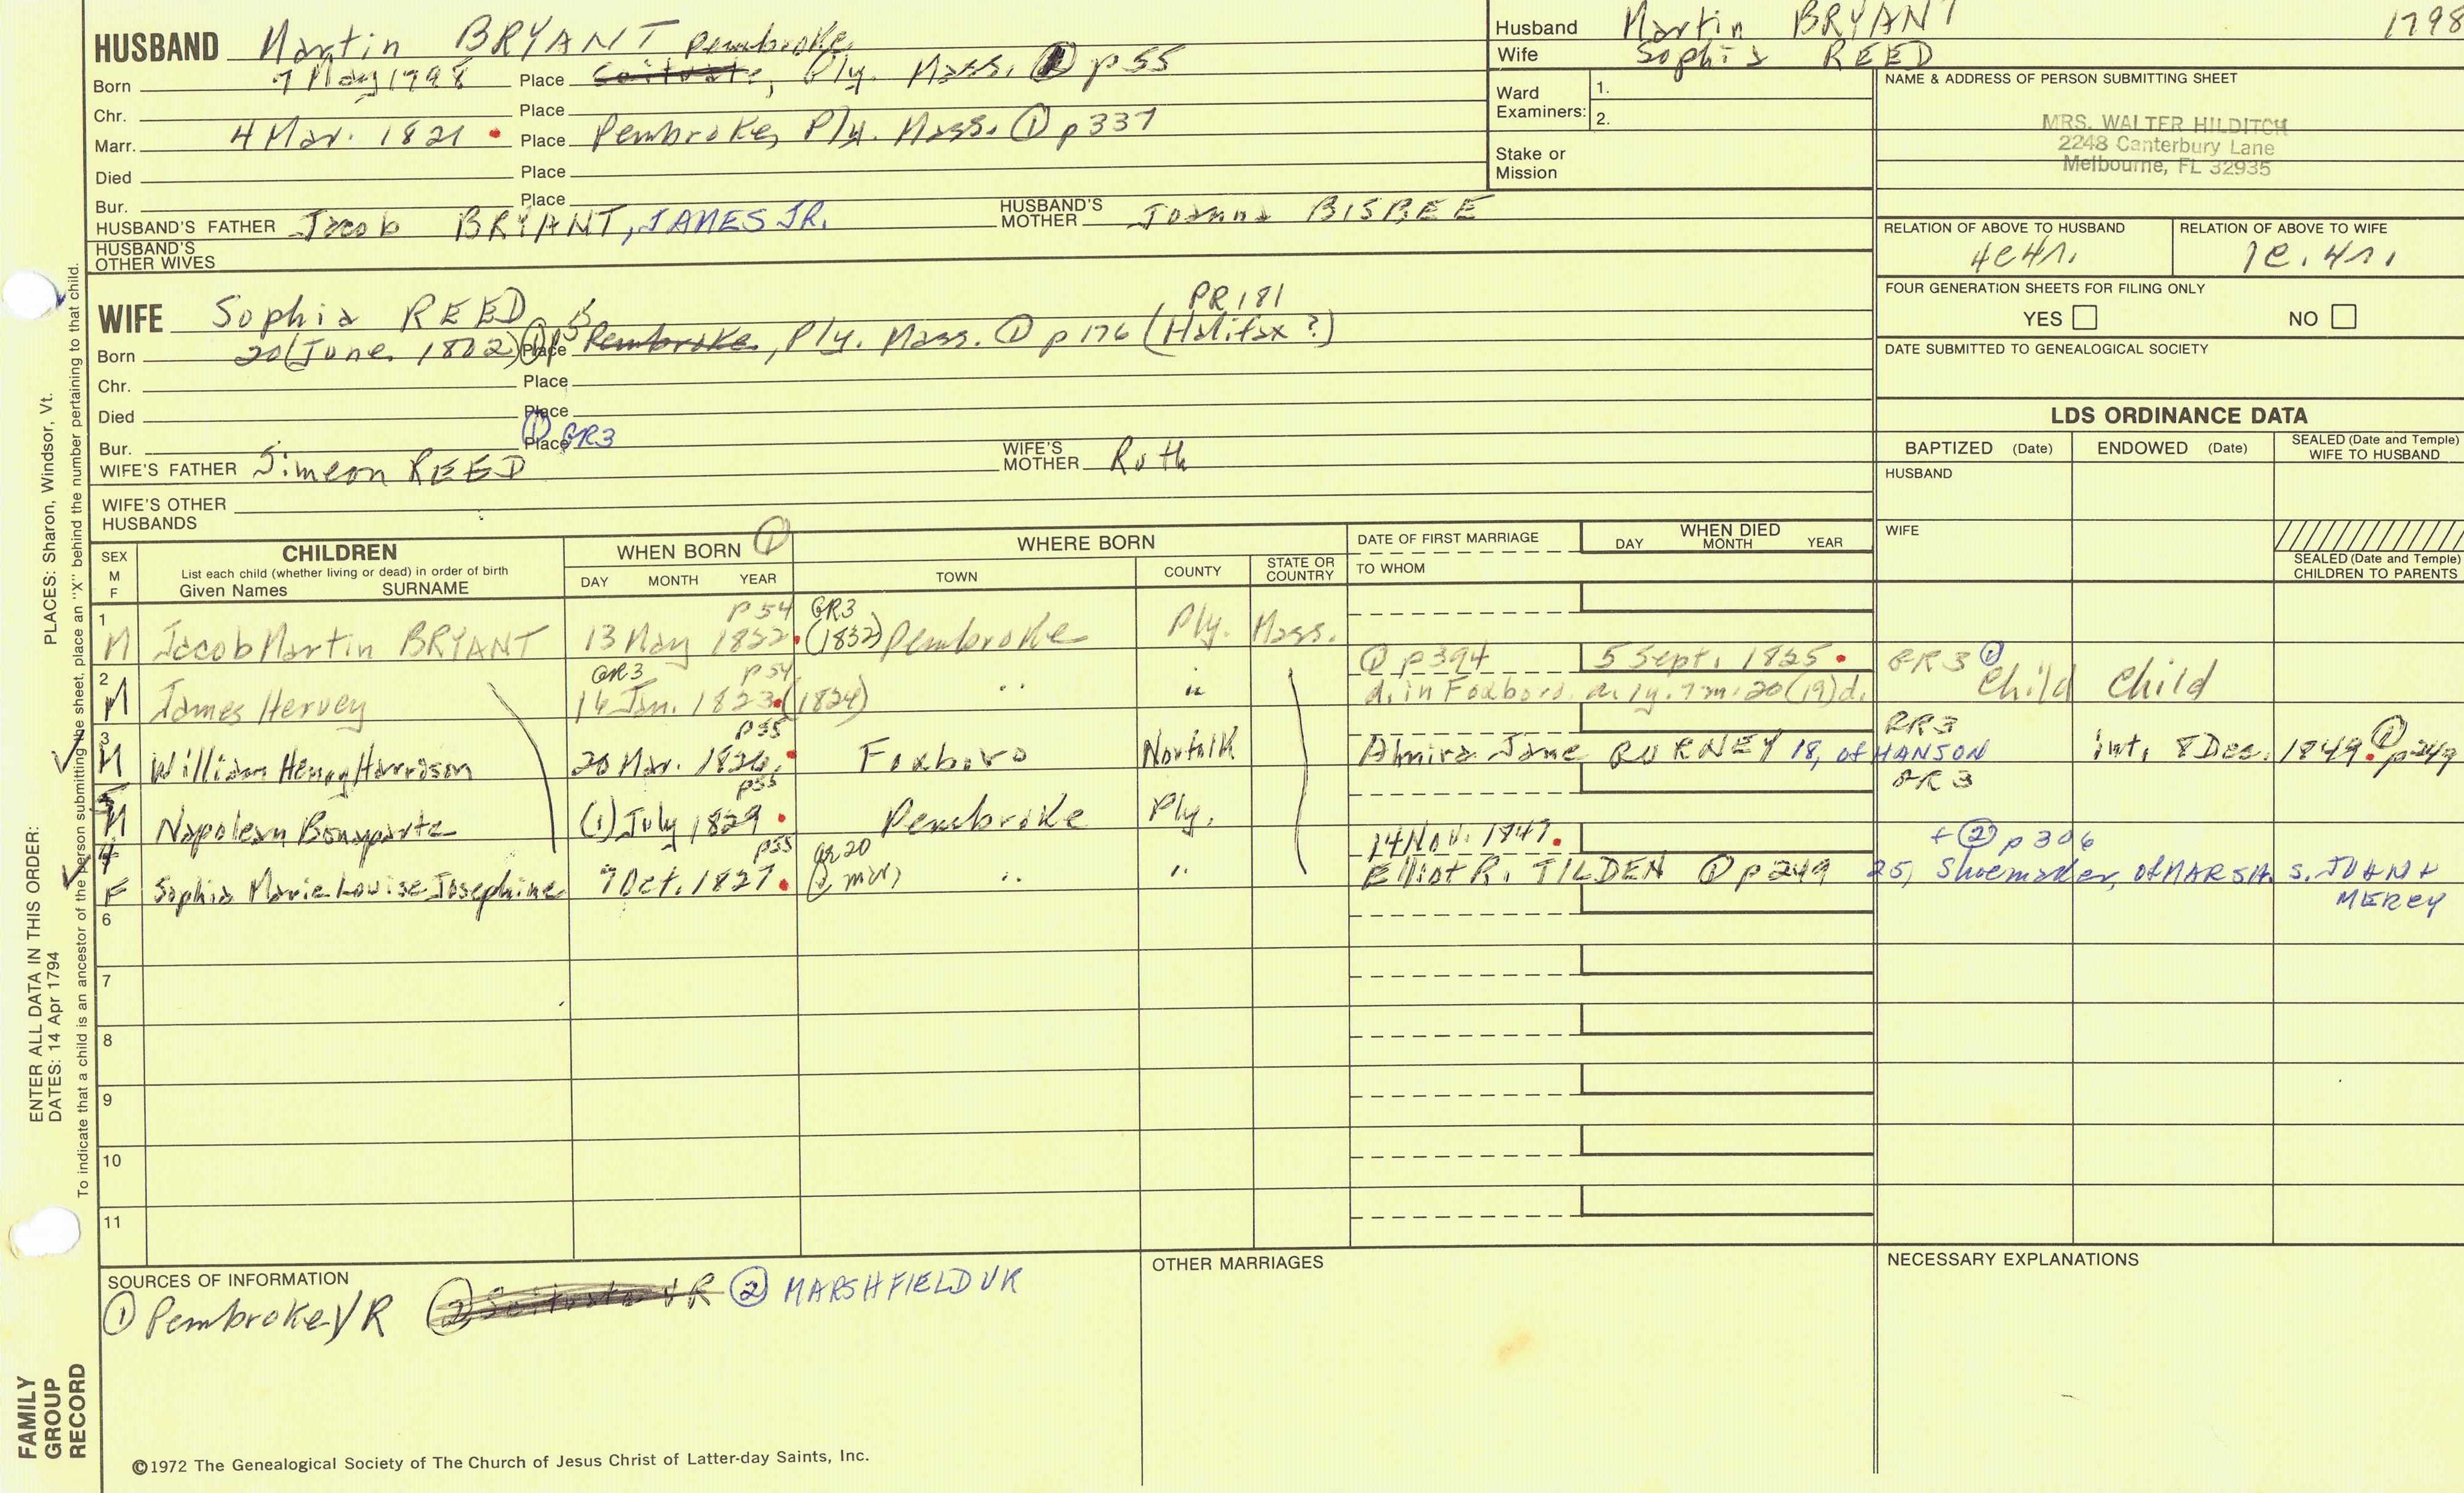 HUSBAND Martin BRYANT Pembroke
Born 7 May 1798 Place Scituate, Ply. Mass. ① p55
Chr. Place
Marr. 4 Mar. 1821 Place Pembroke, Ply. Mass. ① p337
Died Place
Bur. Place
HUSBAND'S FATHER Jacob BRYANT, JAMES JR. HUSBAND'S MOTHER Joanna BISBEE
HUSBAND'S OTHER WIVES
Husband Martin BRYANT 1798
Wife Sophia REED
Ward Examiners: 1.
2.
Stake or Mission
NAME & ADDRESS OF PERSON SUBMITTING SHEET
MRS. WALTER HILDITCH
2248 Canterbury Lane
Melbourne, FL 32935
RELATION OF ABOVE TO HUSBAND RELATION OF ABOVE TO WIFE
4c4r. 1c.4r.
FOUR GENERATION SHEETS FOR FILING ONLY
YES NO
DATE SUBMITTED TO GENEALOGICAL SOCIETY
WIFE Sophia REED PR181
Born 20 (June 1802) Place Pembroke, Ply. Mass. ① p176 (Halifax ?)
Chr. Place
Died Place
Bur. Place ① GR3
WIFE'S FATHER Simeon REED WIFE'S MOTHER Ruth
WIFE'S OTHER HUSBANDS
LDS ORDINANCE DATA
BAPTIZED (Date) ENDOWED (Date) SEALED (Date and Temple) WIFE TO HUSBAND
HUSBAND
WIFE
SEALED (Date and Temple) CHILDREN TO PARENTS
SEX M F
CHILDREN
List each child (whether living or dead) in order of birth
Given Names SURNAME
WHEN BORN ①
DAY MONTH YEAR
WHERE BORN
TOWN COUNTY STATE OR COUNTRY
DATE OF FIRST MARRIAGE
TO WHOM
WHEN DIED
DAY MONTH YEAR
1 p54 GR3
M Jacob Martin BRYANT 13 May 1822 (1832) Pembroke Ply. Mass.
2 GR3 p54 ① p394 5 Sept. 1825 GR3 ①
M James Hervey 16 Jan. 1823 (1824) " " d. in Foxboro. a. 1y. 7m. 20 (19) d. Child Child
3 p55 GR3
M William Henry Harrison 20 Mar. 1826 Foxboro Norfolk Almira Jane 18, of HANSON int. 8 Dec. 1849 ① p249
5 p55 GR3
M Napolean Bonaparte (1) July 1829 Pembroke Ply.
4 p55 GR20 14 Nov. 1847 + ② p306
F Sophia Marie Louise Josephine 7 Oct. 1827 " " Elliot R. TILDEN ① p249 25, Shoemaker, of MARSH. S. JOHN +
MERCY
6
7
8
9
10
11
SOURCES OF INFORMATION
① Pembroke VR ② Scituate VR ② MARSHFIELD VR
OTHER MARRIAGES
NECESSARY EXPLANATIONS
©1972 The Genealogical Society of The Church of Jesus Christ of Latter-day Saints, Inc.
FAMILY GROUP RECORD
ENTER ALL DATA IN THIS ORDER:
DATES: 14 Apr 1794
PLACES: Sharon, Windsor, Vt.
To indicate that a child is an ancestor of the person submitting the sheet, place an "X" behind the number pertaining to that child.